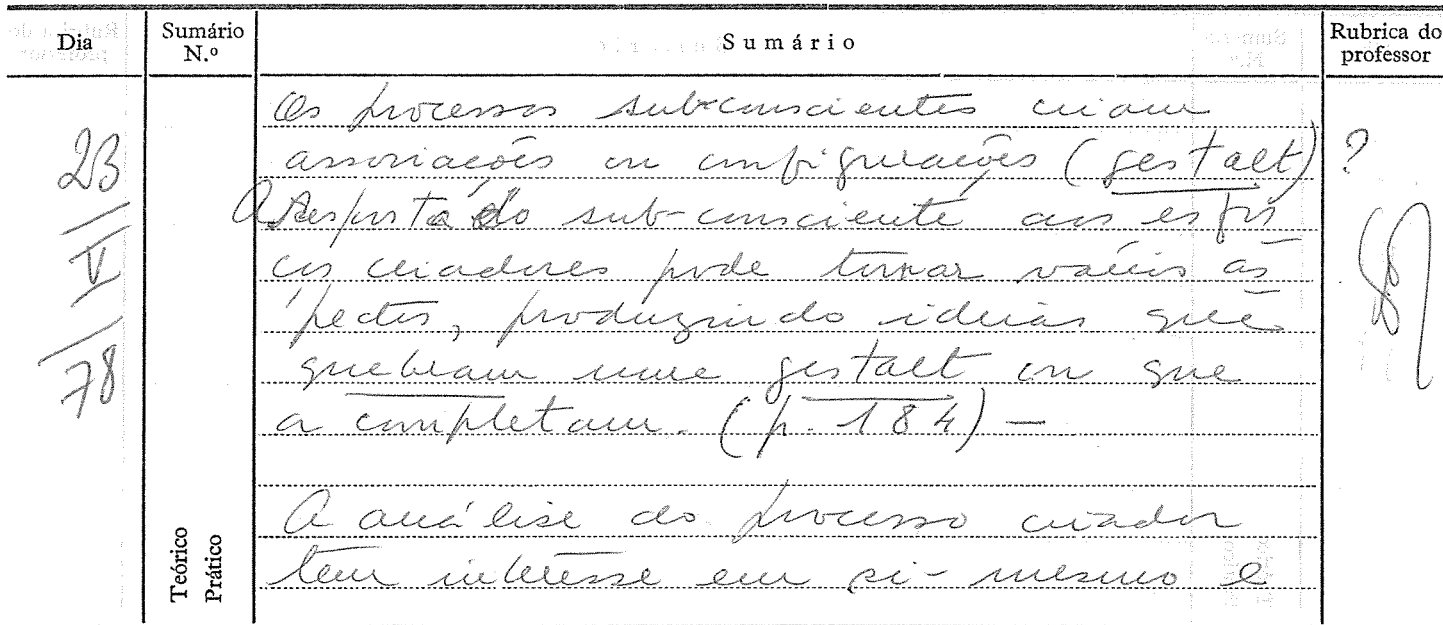 Dia
Sumário
N.º
Sumário
Rubrica do
professor
23
V
78
Os processos sub-conscientes criam
associações ou configurações (gestalt) ?
A Resposta do sub-consciente aos esfor
ços criadores pode tomar vários as
pectos, produzindo ideias que
quebram uma gestalt ou que
a completam. (p. 184) —
A análise do processo criador
tem interesse em si-mesmo e
Teórico
Prático